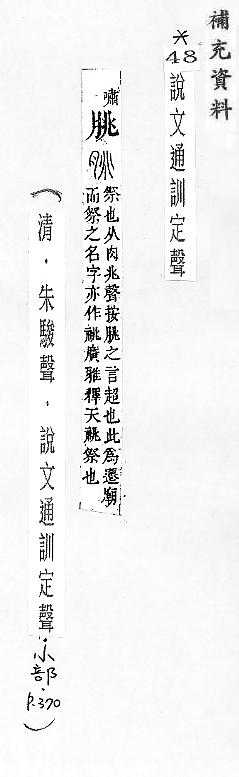 補充資料
*48 說文通訓定聲
嘯
朓
祭也从肉兆聲按朓之言超也此爲遷廟
而祭之名字亦作祧廣雅釋天祧祭也
（清．朱駿聲．說文通訓定聲．小部．P.370）